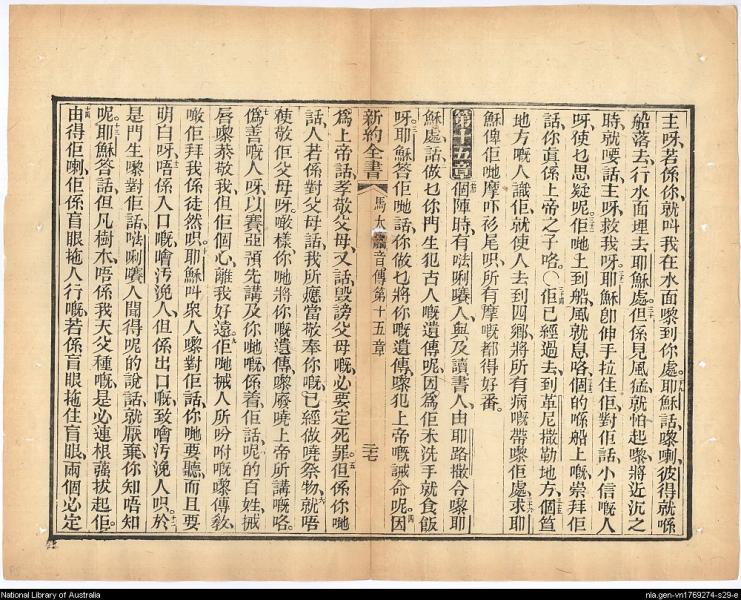 主呀若係你就叫我在水面嚟到你處耶穌話嚟喇彼得就喺
船落去行水面埋去耶穌處但係見風猛就怕起嚟將近沉之
時就嗌話主呀救我呀耶穌卽伸手拉住佢對佢話小信嘅人
呀使乜思疑呢佢哋上到船風就息咯個的喺船上嘅崇拜佢
話你眞係上帝之子咯〇佢已經過去到革尼撒勒地方個笪
地方嘅人識佢就使人去到四鄉將所有病嘅帶嚟佢處求耶
穌俾佢哋摩吓衫尾呮所有摩嘅都得好番
第十五章 個陣時有𠵽唎㘔人與及讀書人由耶路撒冷嚟耶
穌處話做乜你門生犯古人嘅遺傳呢因爲佢未洗手就食飯
呀耶穌答佢哋話你做乜將你嘅遺傳嚟犯上帝嘅誡命呢因
新約全書 馬太福音傳第十五章 三七
爲上帝話孝敬父母又話毀謗父母嘅必要定死罪但係你哋
話人若係對父母話我所應當敬奉你嘅已經做曉祭物就唔
使敬佢父母呀噉樣你哋將你嘅遺傳嚟廢曉上帝所講嘅咯
僞善嘅人呀以賽亞預先講及你哋嘅係着佢話呢的百姓
唇嚟恭敬我但佢個心離我好遠佢哋 人所吩咐嘅嚟傳敎
噉佢拜我係徒然呮耶穌叫衆人嚟對佢話你哋要聽而且要
明白呀唔係入口嘅噲污浼人但係出口嘅致噲污浼人呮於
是門生嚟對佢話 唎㘔人聞得呢的說話就厭棄你知唔知
呢耶穌答話但凡樹木唔係我天父種嘅是必連根强拔起佢
由得佢喇佢係盲眼拖人行嘅若係盲眼拖住盲眼兩個必定
National Library of Australia
nla.gen-vn1769274-s29-e